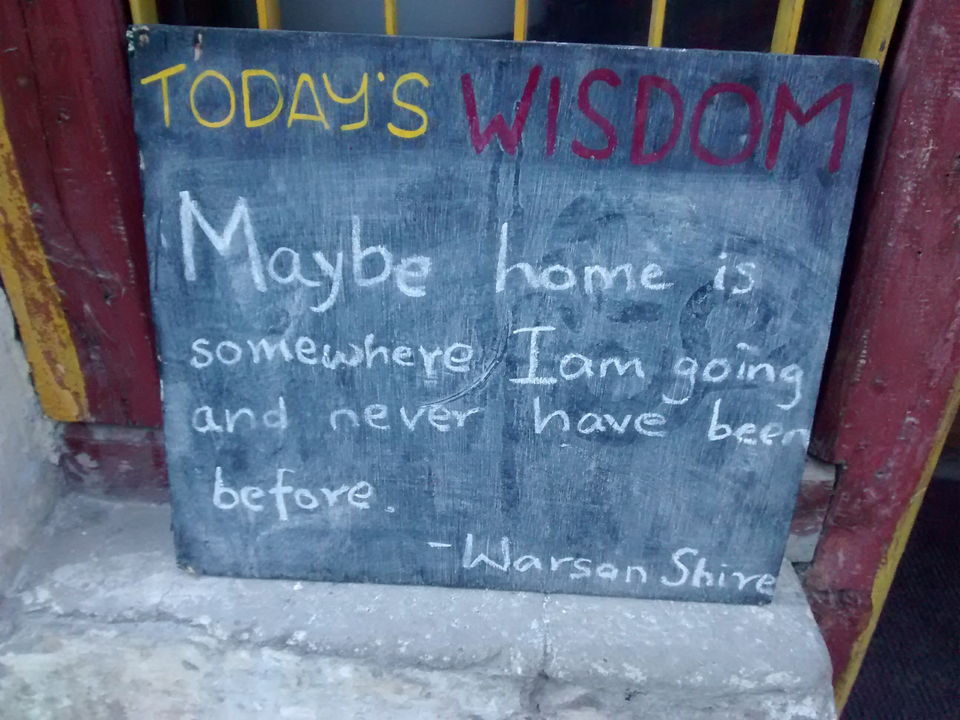 TODAY'S WISDOM
Maybe home is
somewhere I am going
and never have been
before.
-Warsan Shire